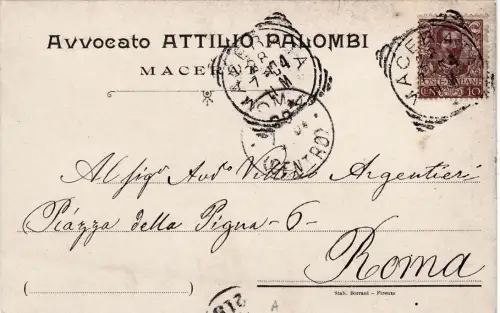 Avvocato ATTILIO PALOMBI
MACERATA
MACERATA
04
POSTE ITALIANE
CENT. 10
ROMA
(CENTRO)
Al Sigr Avvo Vittorio Argentieri
Piazza della Pigna - 6 -
Roma
Stab. Borrani - Firenze
A